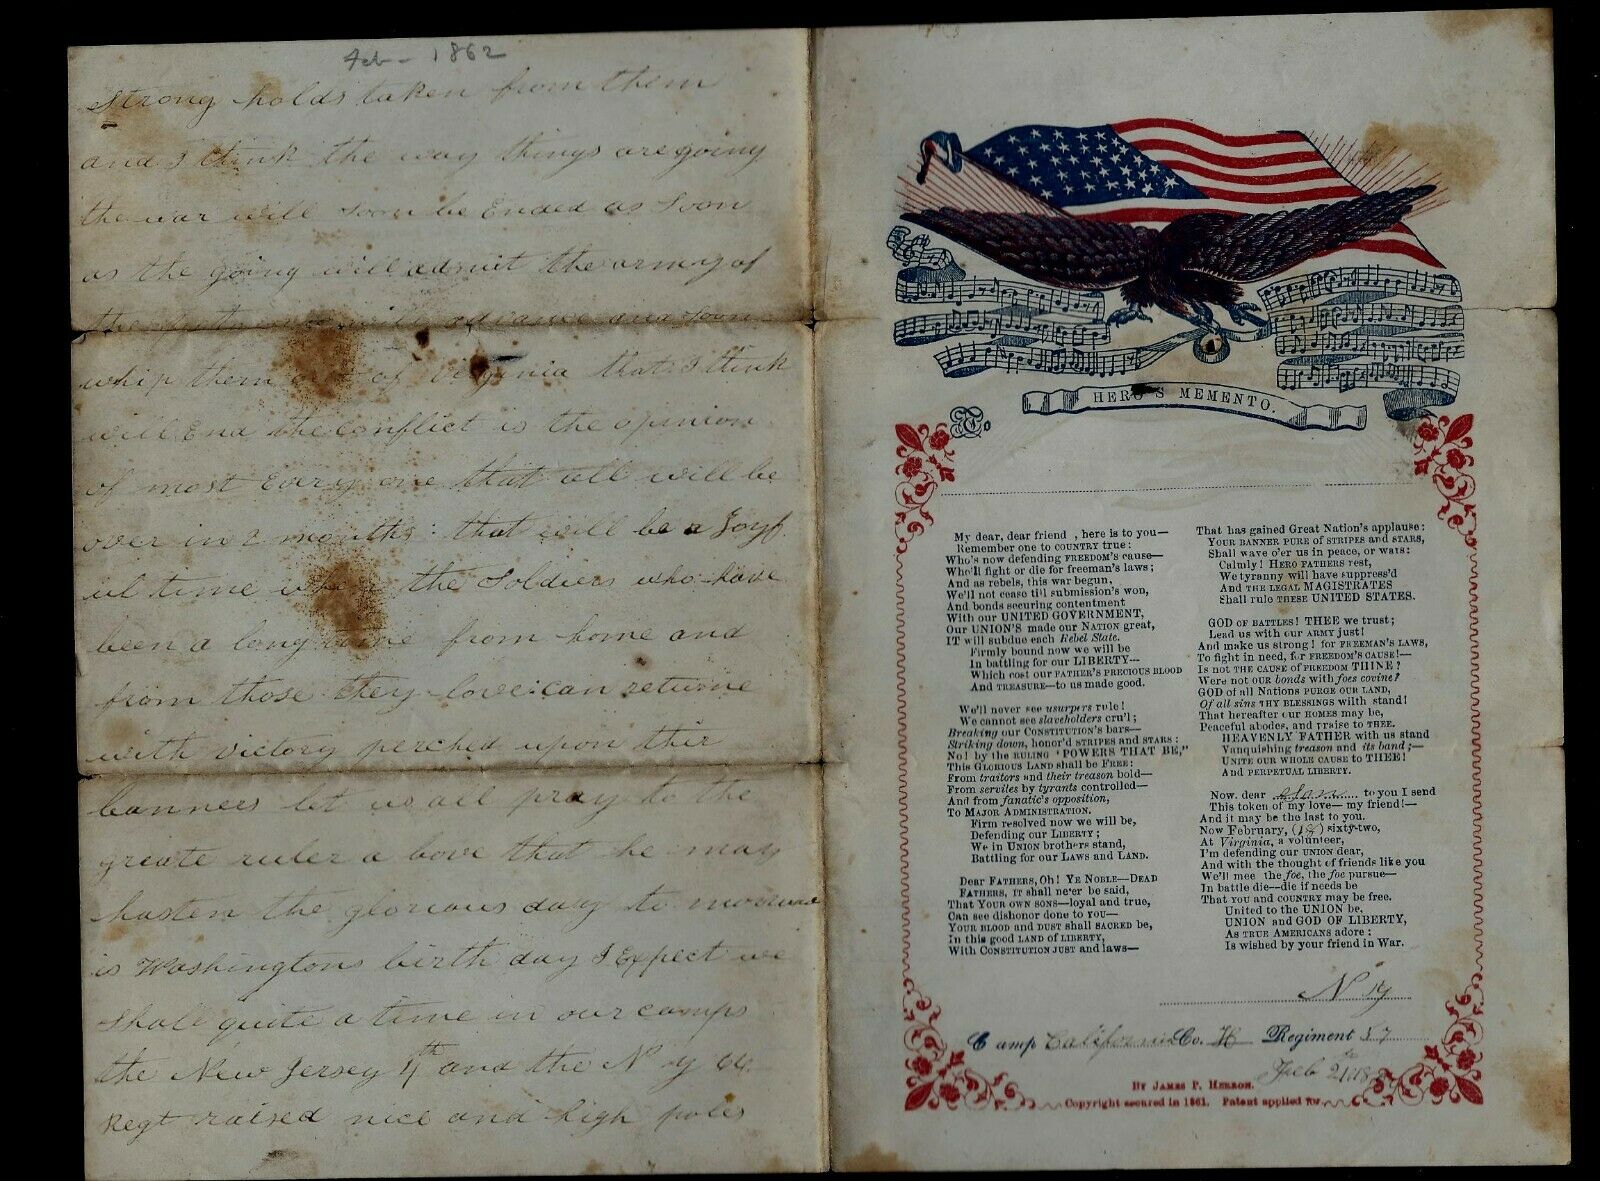 Feb - 1862
Strong holds taken from them
and I think the way things are going
the war will soon be Ended as soon
as the going will admit the army of
the advance and soon
whip them of Virginia that I think
will End the conflict is the opinion
of most Every one that all will be
over in 2 months: that will be a Joyf
ul time when the Soldiers who have
been a long time from home and
from those they love can returne
with victory perched upon thir
banners let us all pray to the
greate ruler a bove that he may
hasten the glorious day to morrow
is Washingtons birth day I Expect we
shall quite a time in our camps
the New Jersey 4th and the N y 64
Regt raised nice and high poles
HERO'S MEMENTO.
My dear, dear friend , here is to you—
Remember one to COUNTRY true:
Who's now defending FREEDOM'S cause—
Who'll fight or die for freeman's laws;
And as rebels, this war begun,
We'll not cease till submission's won,
And bonds securing contentment
With our UNITED GOVERNMENT,
Our UNION'S made our NATION great,
IT will subdue each Rebel State.
Firmly bound now we will be
In battling for our LIBERTY—
Which cost our FATHER'S PRECIOUS BLOOD
And TREASURE—to us made good.
We'll never see usurpers rule!
We cannot see slaveholders cru'l;
Breaking our CONSTITUTION'S bars—
Striking down, honor'd STRIPES and STARS:
No! by the RULING "POWERS THAT BE,"
This GLORIOUS LAND shall be FREE:
From traitors and their treason bold—
From serviles by tyrants controlled—
And from fanatic's opposition,
To MAJOR ADMINISTRATION.
Firm resolved now we will be,
Defending our LIBERTY;
We in UNION brothers stand,
Battling for our LAWS and LAND.
Dear FATHERS, Oh! YE NOBLE—DEAD
FATHERS, IT shall ne'er be said,
That YOUR OWN SONS—loyal and true,
Can see dishonor done to YOU—
YOUR BLOOD and DUST shall SACRED be,
In this good LAND OF LIBERTY,
With CONSTITUTION JUST and laws—
That has gained Great Nation's applause:
YOUR BANNER PURE of STRIPES and STARS,
Shall wave o'er us in peace, or wars:
Calmly! HERO FATHERS rest,
We tyranny will have suppress'd
And THE LEGAL MAGISTRATES
Shall rule THESE UNITED STATES.
GOD OF BATTLES! THEE we trust;
Lead us with our ARMY just!
And make us strong! for FREEMAN'S LAWS,
To fight in need, for FREEDOM'S CAUSE!—
Is not THE CAUSE of FREEDOM THINE?
Were not OUR bonds with foes covine?
GOD of all Nations PURGE OUR LAND,
Of all sins THY BLESSINGS wilth stand!
That hereafter our HOMES may be,
Peaceful abodes, and praise to THEE.
HEAVENLY FATHER with us stand
Vanquishing treason and its band;—
UNITE OUR WHOLE CAUSE to THEE!
And PERPETUAL LIBERTY.
Now, dear Son to you I send
This token of my love—my friend!—
And it may be the last to you.
Now February, (18) sixty-two,
At Virginia, a volunteer,
I'm defending our UNION dear,
And with the thought of friends like you
We'll mee the foe, the foe pursue—
In battle die—die if needs be
That YOU and COUNTRY may be free.
United to the UNION be,
UNION and GOD OF LIBERTY,
As TRUE AMERICANS adore:
Is wished by your friend in War.
N y
Camp California Co. H Regiment 57
Feb 21 1862
BY JAMES P. HERRON.
Copyright secured in 1861. Patent applied for.